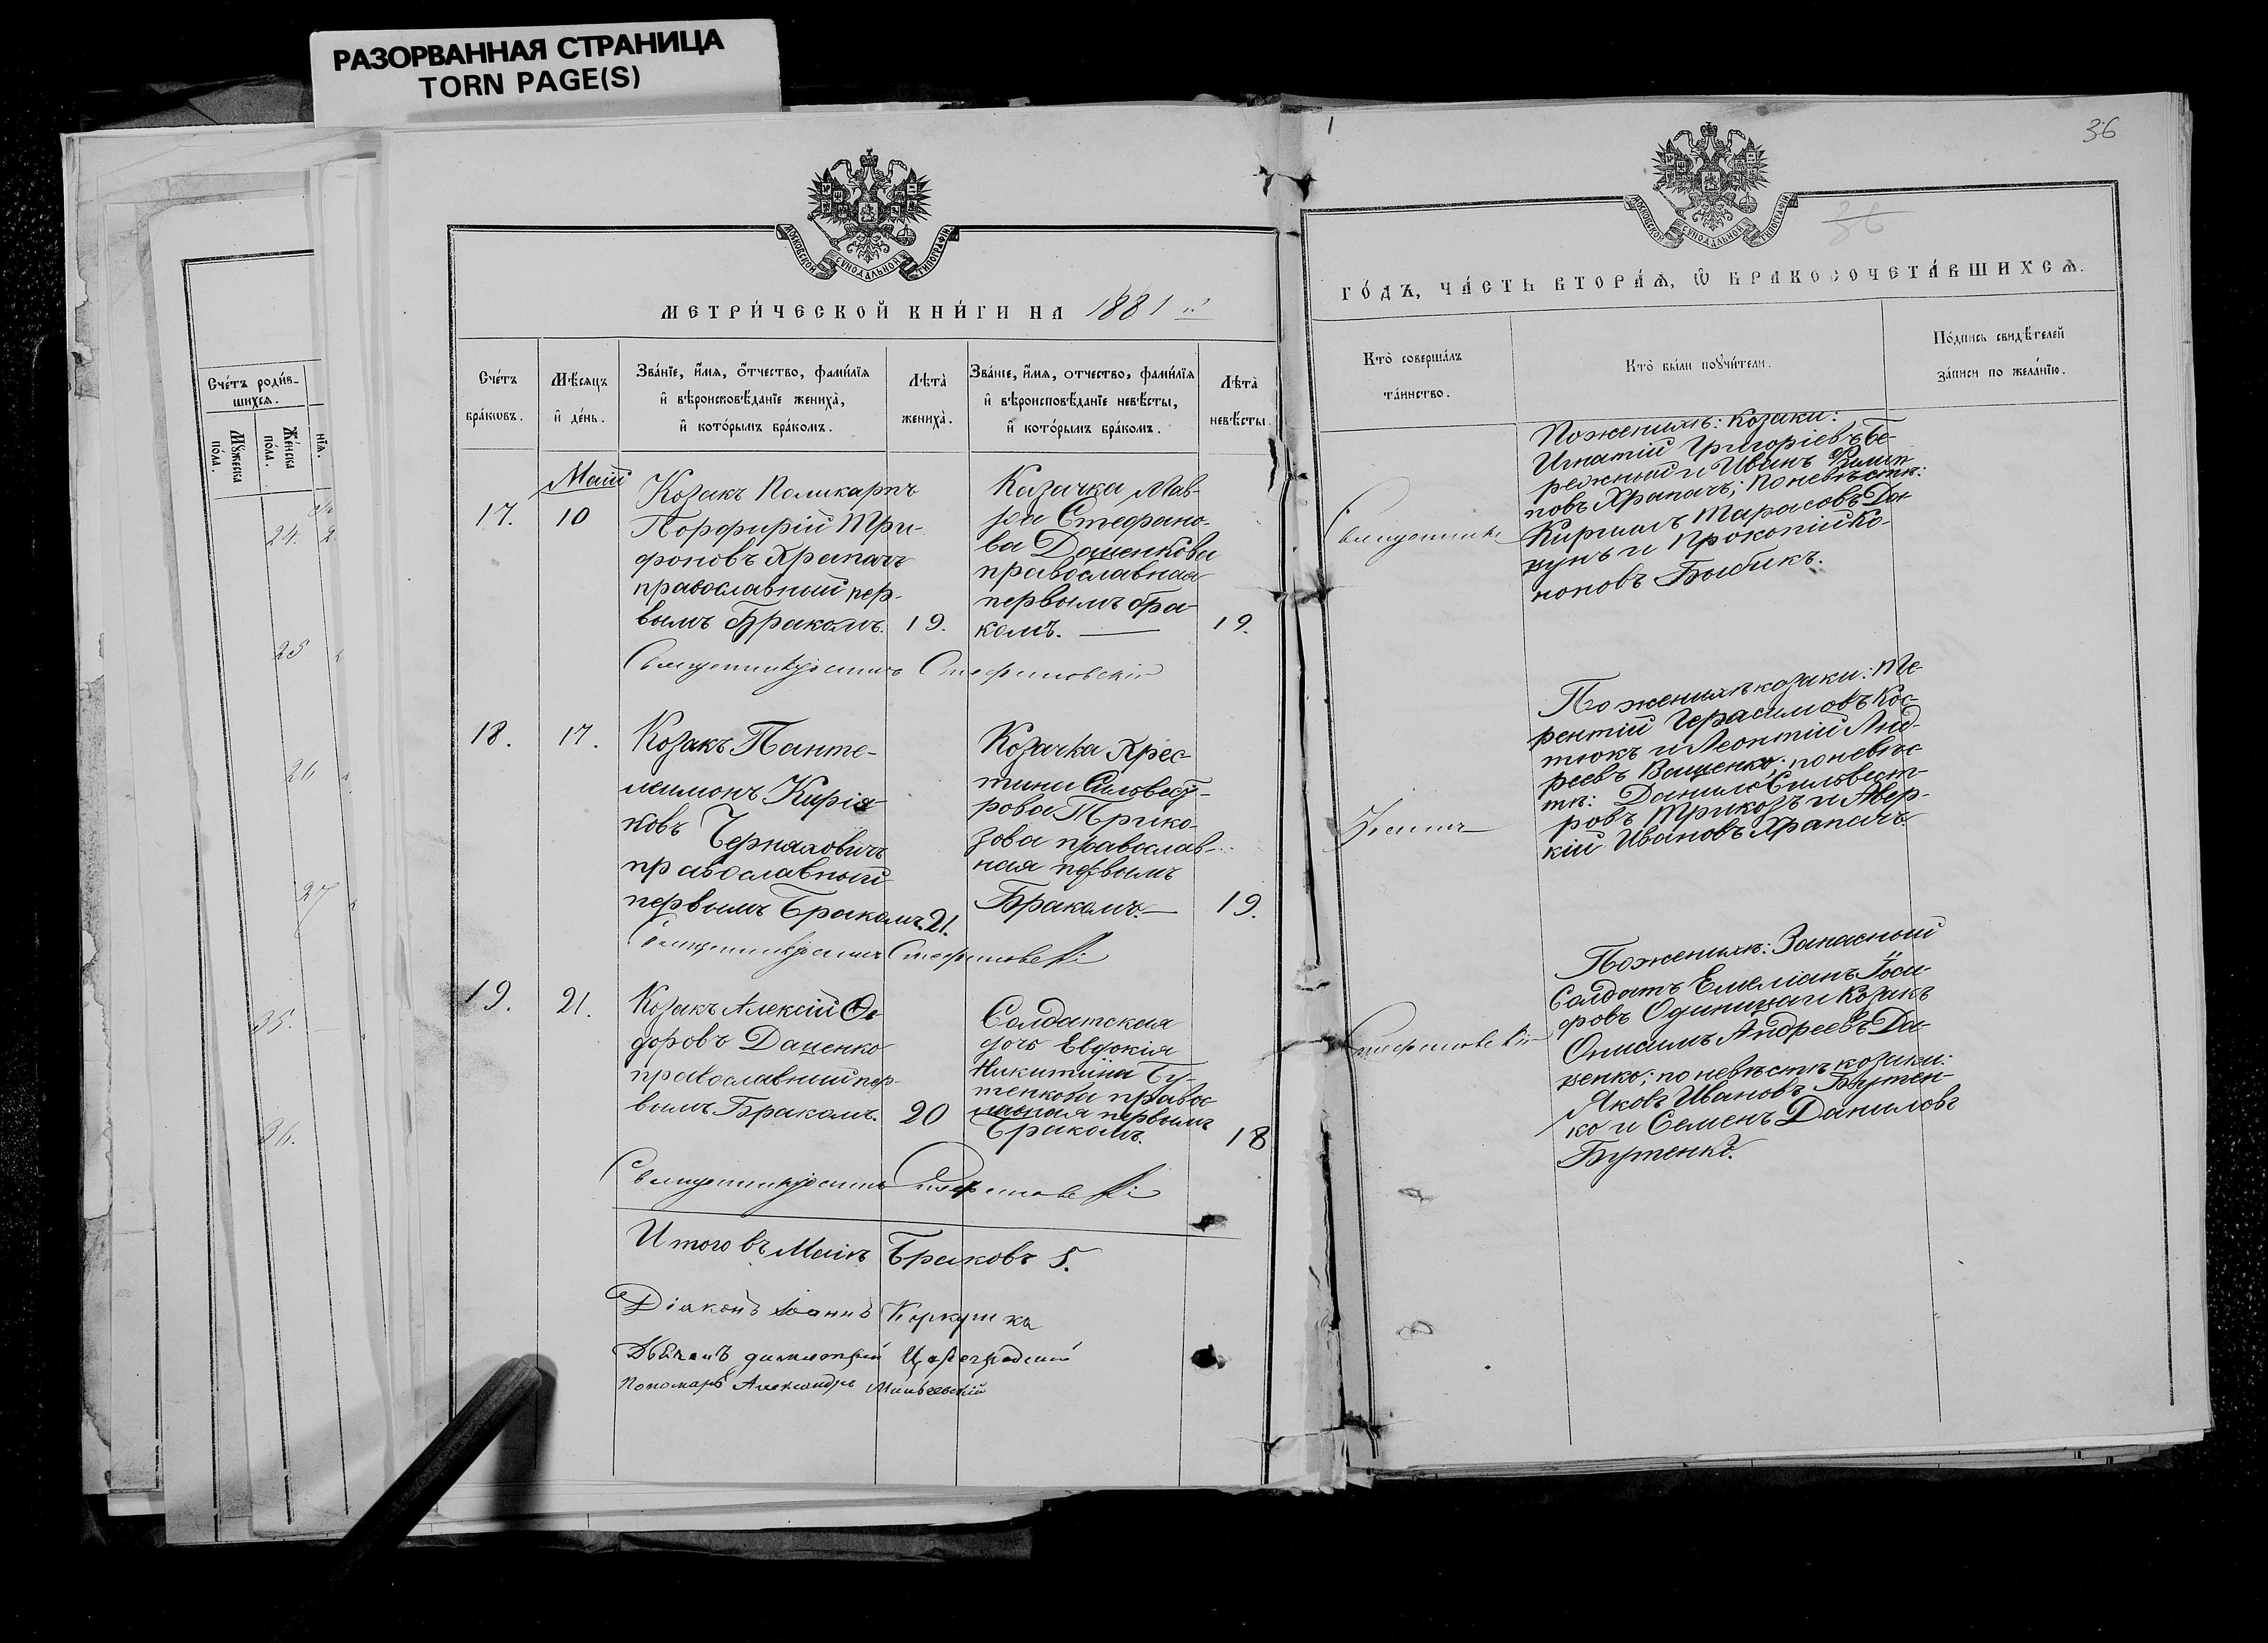 РАЗОРВАННАЯ СТРАНИЦА
TORN PAGE(S)
Сче́тъ роди́в-
шихсѧ.
Мꙋжеска
по́ла.
Же́нска
по́ла.
нїѧ.
24.
25
26
27
25.
26.
МОСКОВСКОЙ СѴНОДАЛЬНОЙ ТИПОГРАФІИ
МЕТРИ́ЧЕСКОЙ КНИ́ГИ НА 1881 й
Сче́тъ
бра́кѡвъ.
Мѣ́сѧцъ
и҆ де́нь.
Зва́нїе, и҆́мѧ, ѻ҆́тчество, фами́лїѧ
и҆ вѣроисповѣ́данїе жениха̀,
и҆ кото́рымъ бра́комъ.
Лѣ́та̀
жениха̀.
Зва́нїе, и҆́мѧ, ѻтчество, фами́лїѧ
и҆ вѣроисповѣ́данїе невѣ́сты,
и҆ кото́рымъ бра́комъ.
Лѣ́та̀
невѣ́сты
Май
17.
10
Козакъ Поликарпъ
Порфирій Три-
фоновъ Храпачъ
православный пер-
вымъ Бракомъ.
19.
Казачка Мав-
ра Стефано-
ва Даценкова
православная
первымъ бра-
комъ.
19.
Священникъ Іоаннъ Стефановскій
18.
17.
Козакъ Панте-
леимонъ Кирія-
ковъ Черняховичъ
православный
первымъ Бракомъ.
21.
Козачка Хрес-
тина Силовест-
рова Трико-
зова православ-
ная первымъ
Бракомъ.
19.
Священникъ Іоаннъ Стефановскій
19.
21.
Козакъ Алексій Ѳе-
доровъ Даценко
православный пер-
вымъ Бракомъ.
20
Солдатская
дочь Евдокія
Никитина Бу-
тенкова правос-
лавная первымъ
Бракомъ.
18
Священникъ Іоаннъ Стефановскій
Итого въ Маіѣ Браковъ 5.
Діаконъ Іоаннъ
Дьячокъ димитрій Цареградскій
Пономарь Александръ
36
36
МОСКОВСКОЙ СѴНОДАЛЬНОЙ ТИПОГРАФІИ
ГО́ДЪ, ЧА́СТЬ ВТОРА́Ѧ, Ѡ҆ БРАКОСОЧЕТА́ВШИХСѦ.
Кто̀ соверша́лъ
та́инство.
Кто̀ бы́ли поꙋчи́тели.
По́дпись свидѣ́телей
за́писи по жела́нїю.
Священникъ
По женихѣ: Козаки:
Игнатій Григоріевъ Бе-
режный и Иванъ Филип
повъ Храпачъ; по невѣстѣ:
Кириллъ Тарасовъ До-
гунъ и Прокопій Ко-
ноновъ Быбикъ.
Іоаннъ
По женихѣ козаки: Те-
рентій Герасимовъ Кос-
тюкъ и Леонтій Анд-
реевъ Ващенко; по невѣс-
тѣ: Данило Силовест-
ровъ Трикозъ и Авер-
кій Ивановъ Храпачъ.
Стефановскій
По женихѣ: Запасный
Солдатъ Емеліанъ Іоси-
фовъ Одиница и Козакъ
Онисимъ Андреевъ Да-
ценко; по невѣстѣ козаки:
Яковъ Ивановъ Бутен-
ко и Семенъ Даниловъ
Бутенко.